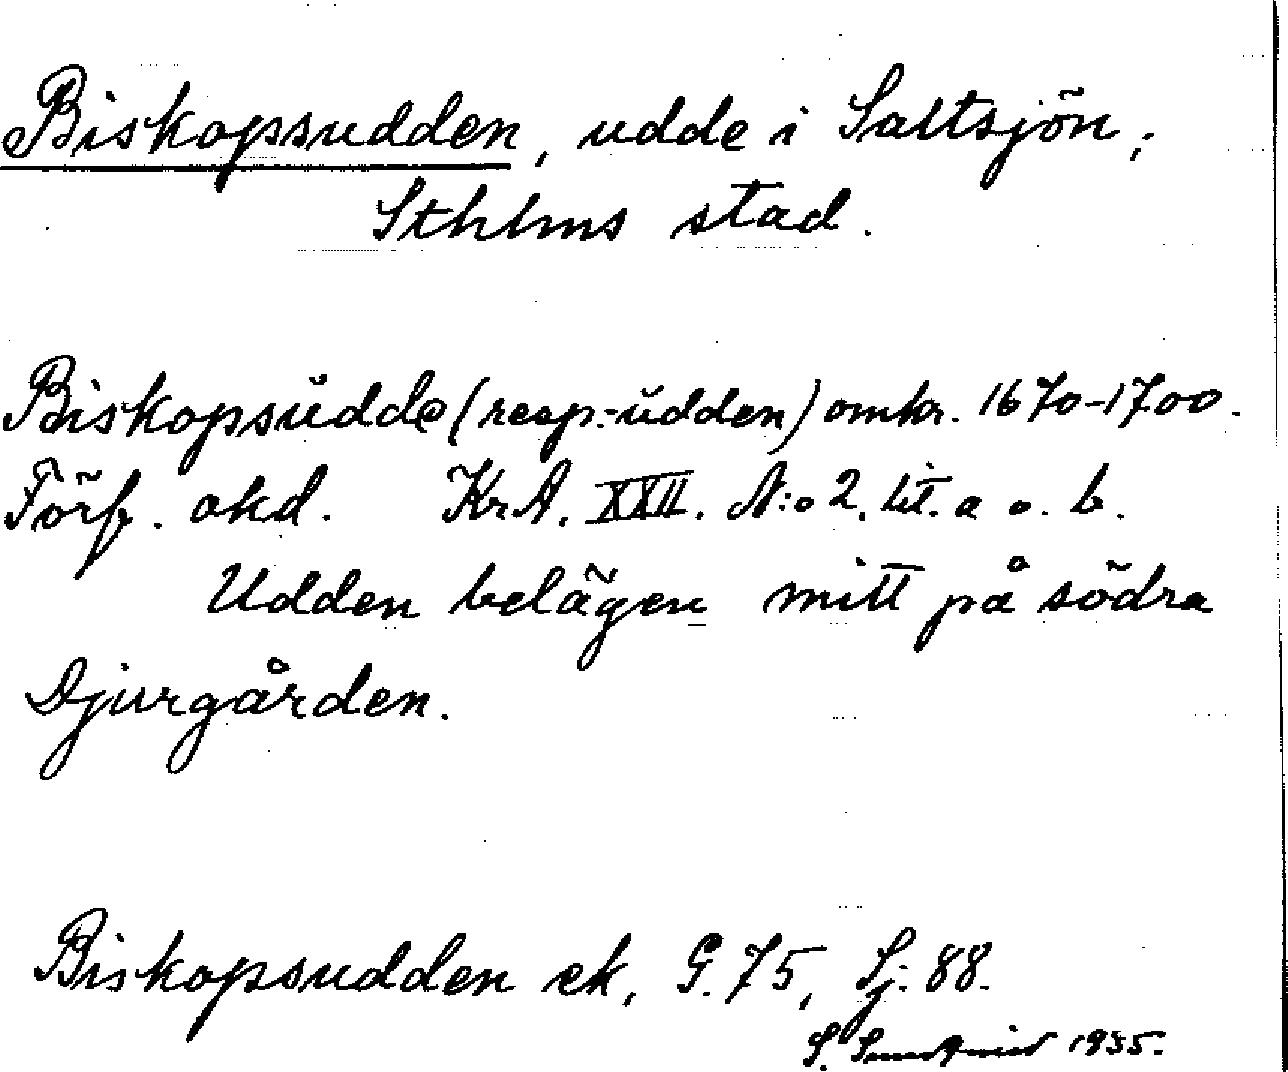 Biskopsudden, udde i Saltsjön,
Sthlms stad.
Biskopsŭdde (resp. -ŭdden) omkr. 1670-1700.
Förf. okd. KrA. XXII. N:o 2. lit. a o. b.
Udden belägen mitt på södra
Djurgården.
Biskopsudden ek, G. 75, Sj. 88.
S. 1935.